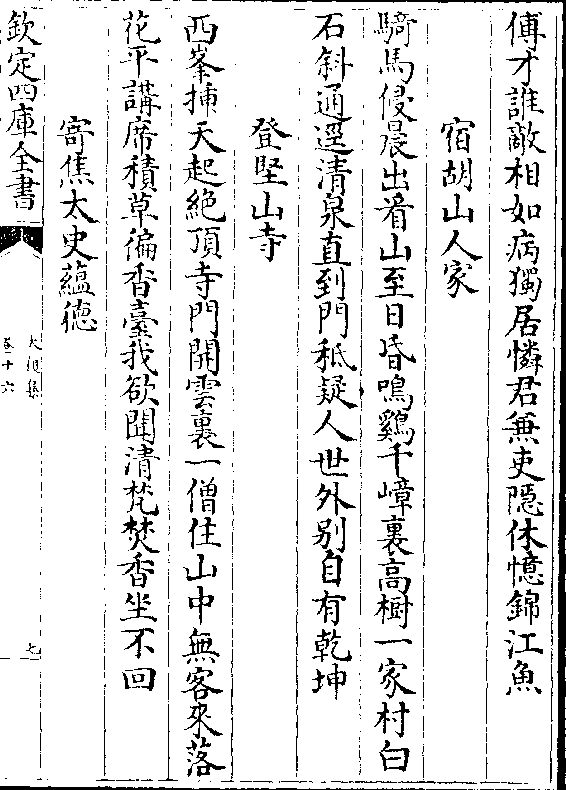 傅才誰敵相如病獨居憐君兼吏隠休憶錦江魚
宿胡山人家
騎馬侵晨出看山至日昏鳴鷄千嶂裏高樹一家村白
石斜通逕清泉直到門秪疑人世外别自有乾坤
登堅山寺
西峯挿天起絶頂寺門開雲裏一僧住山中無客來落
花平講席積草徧香臺我欲聞清梵焚香坐不回
寄焦太史藴徳
欽定四庫全書
卷十六
七